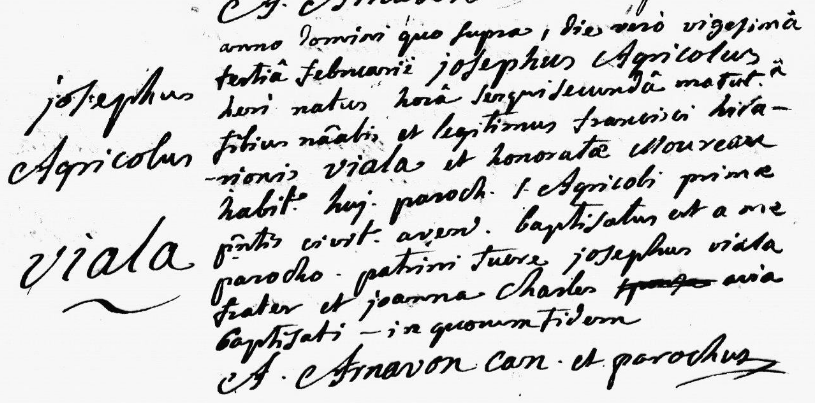 A. Arnavon
anno Domini quo supra, die verò vigesimâ
tertiâ februarii josephus Agricolus
heri natus horâ sesquisecundâ matut.â
filius nãalis et legitimus francisci hila-
rionis viala et honoratæ Moureau
habit. huj. paroch. S. Agricoli primæ
p̃ntis civit. aven. baptisatus est a me
parocho. patrini fuere josephus viala
frater et joanna Charles avia
baptisati - in quorum fidem
A. Arnavon can. et parochus
josephus
Agricolus
viala